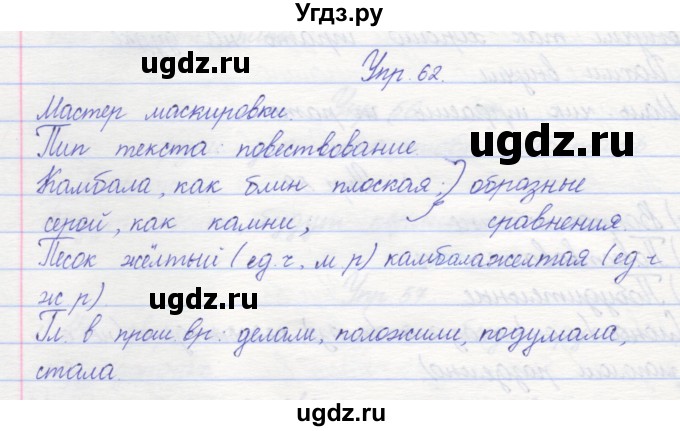 Угдз.ру
Упр. 62.
Мастер маскировки.
Тип текста: повествование
Камбала, как блин плоская;) образные
серой, как камни; сравнения.
Песок жёлтый (ед.ч. м.р) камбала желтая (ед.ч
ж р)
Гл. в прош. вр.: делали, положили, подумала,
стала.
ugdz.ru
ugdz.ru
ugdz.ru
ugdz.ru
ugdz.ru